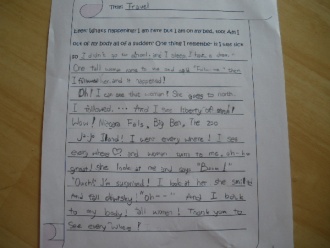 Title: Travel
Eeek! What's happening? I am here but I am on my bed, too! Am I
out of my body all of a sudden? One thing I remember is I was sick
so I didn't go to and I sleep I had a
One tall woman came to me and said "Follow me" Then
I followed and it happened!
Oh! I can see the woman! She goes to north
I followed.... And I saw liberty of
Wow! Niagra Falls, Big Ben, The zoo
Ju-ju Iland! I went every where! I see
every and woman runs to me, oh-h-o
great! She look at me and says "Bam!"
"Ouch!" I'm surprised! I look at her she
And fall "Oh~~" And I back
to my body! tall woman! Thank you to
see every where!